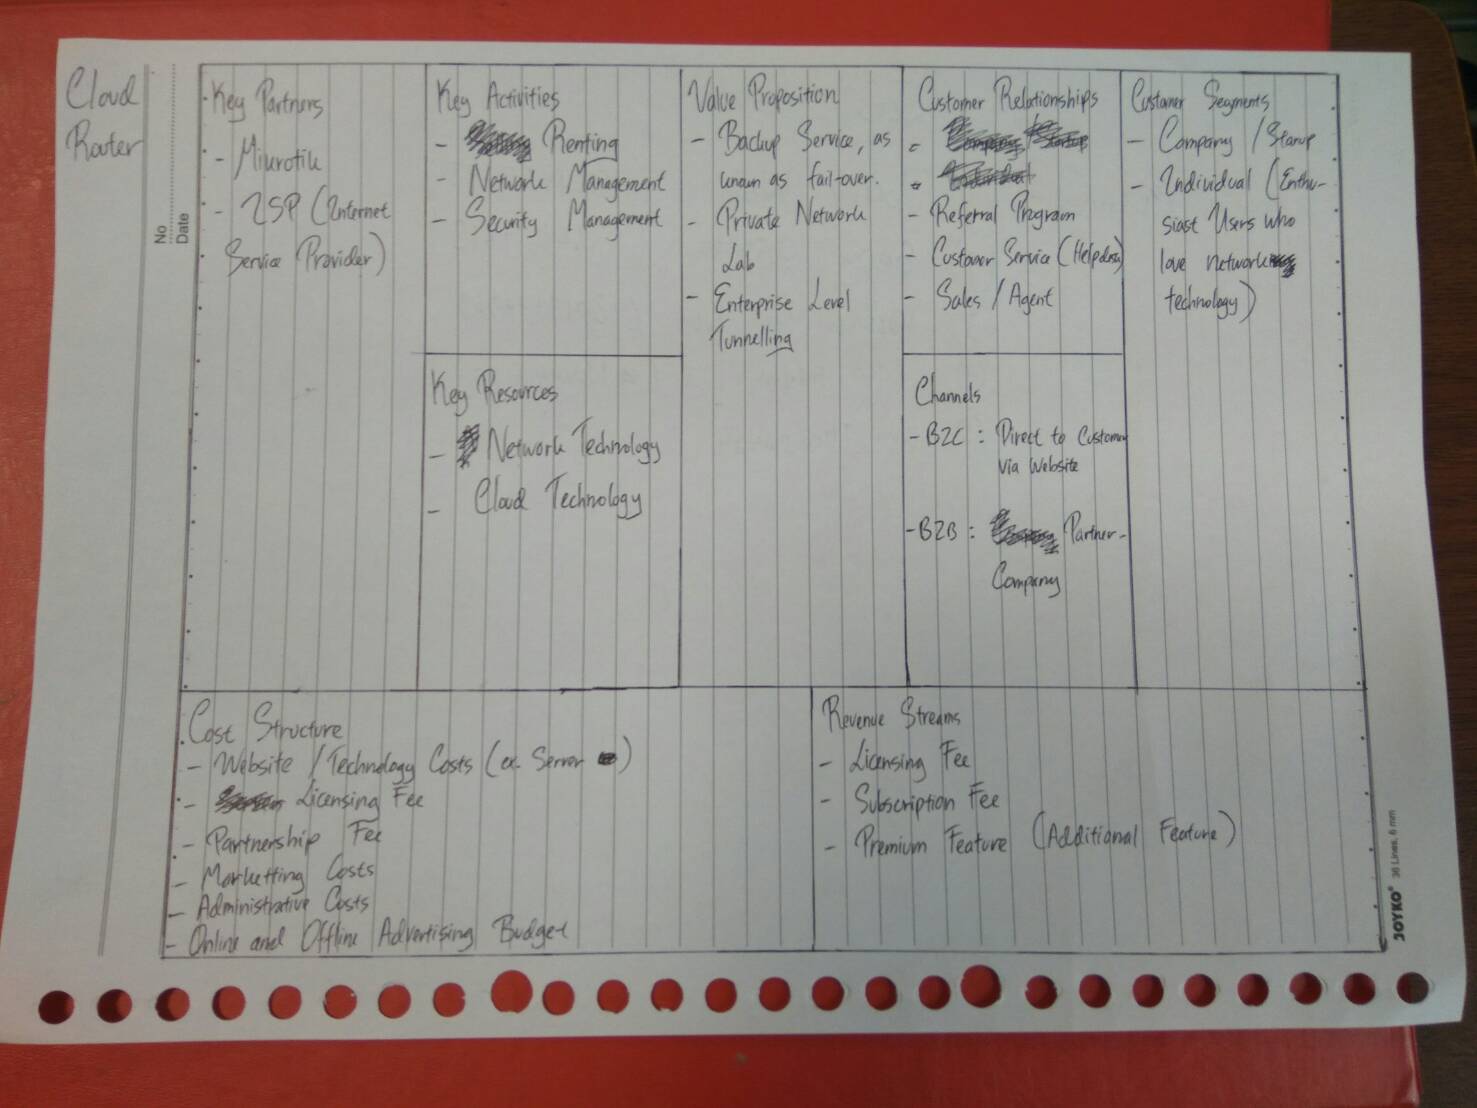 Cloud
Router
No
Date
Key Partners
- Mikrotik
- ISP (Internet
Service Provider)
Key Activities
- Renting
- Network Management
- Security Management
Key Resources
- Network Technology
- Cloud Technology
Value Proposition
- Backup Service, as
known as fail-over.
- Private Network
Lab
- Enterprise Level
Tunnelling
Customer Relationships
- Referral Program
- Customer Service (Helpdesk)
- Sales / Agent
Channels
- B2C : Direct to Customer
via Website
- B2B : Partner-
Company
Customer Segments
- Company / Starup
- Individual (Enthu-
siast Users who
love network
technology)
Cost Structure
- Website / Technology Costs (ex. Server )
- Licensing Fee
- Partnership Fee
- Marketting Costs
- Administrative Costs
- Online and Offline Advertising Budget
Revenue Streams
- Licensing Fee
- Subscription Fee
- Premium Feature (Additional Feature)
JOYKO® 36 Lines, 6 mm